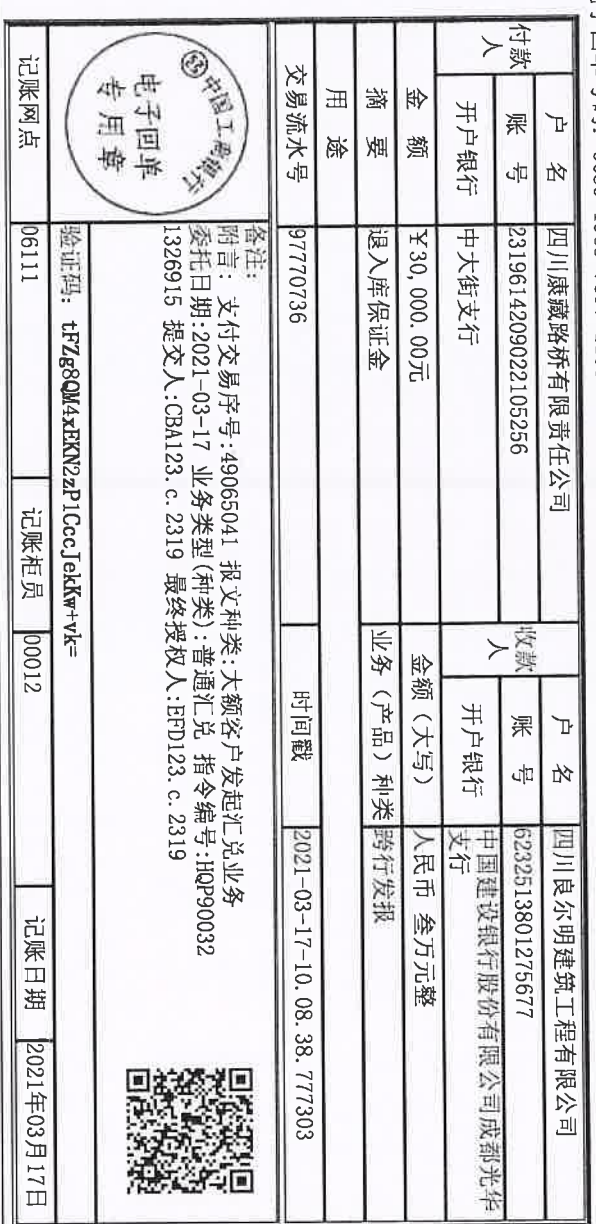 付款人
户 名
四川康藏路桥有限责任公司
收款人
户 名
四川良尔明建筑工程有限公司
账 号
2319614209022105256
账 号
6232513801275677
开户银行
中大街支行
开户银行
中国建设银行股份有限公司成都光华
支行
金 额
¥30,000.00元
金额(大写)
人民币 叁万元整
摘 要
退入库保证金
业务(产品)种类
跨行发报
用 途
交易流水号
97770736
时间戳
2021-03-17-10.08.38.777303
中国工商银行
电子回单
专用章
备注:
附言: 支付交易序号:49065041 报文种类:大额客户发起汇兑业务
委托日期:2021-03-17 业务类型(种类):普通汇兑 指令编号:HQP90032
1326915 提交人:CBA123.c.2319 最终授权人:EFD123.c.2319
验证码: tFZg8QM4xEKN2zP1CccJekKw+vk=
记账网点
06111
记账柜员
00012
记账日期
2021年03月17日